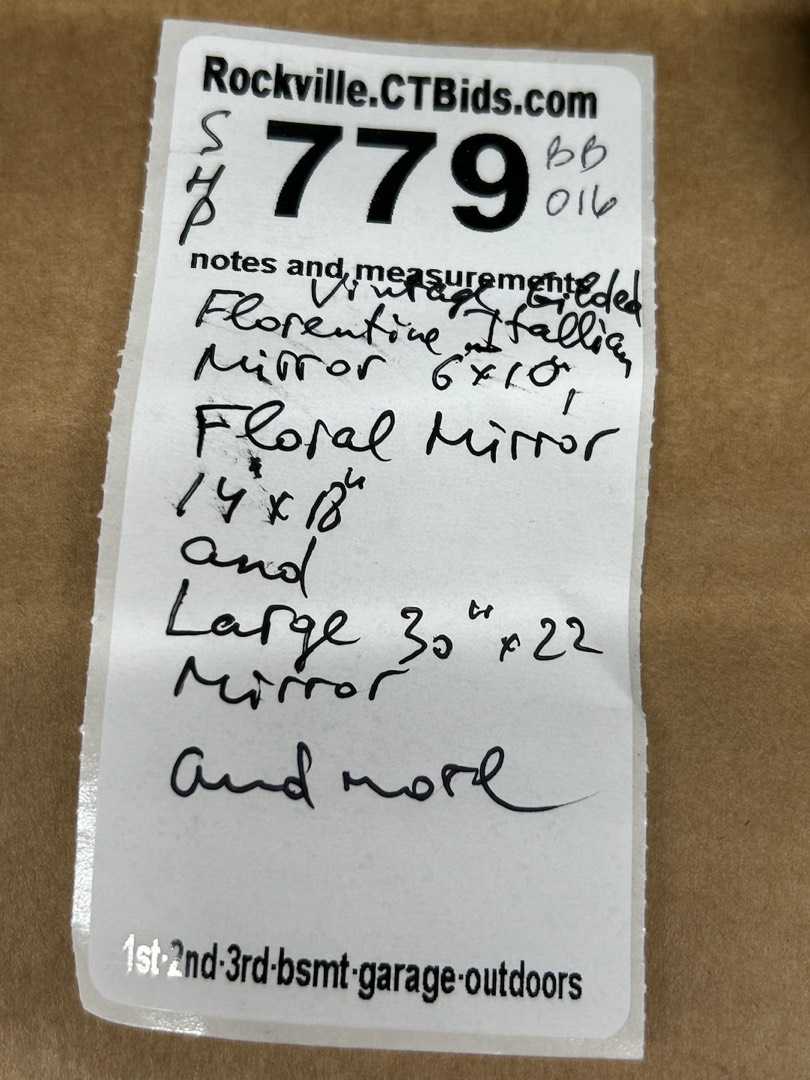 Rockville.CTBids.com
SHP
779
BB
016
notes and measurements
Vintage Gilded
Florentine Itallian
Mirror 6"x10",
Floral Mirror
14"x18"
and
Large 30"x22
Mirror
and more
1st·2nd·3rd·bsmt·garage·outdoors